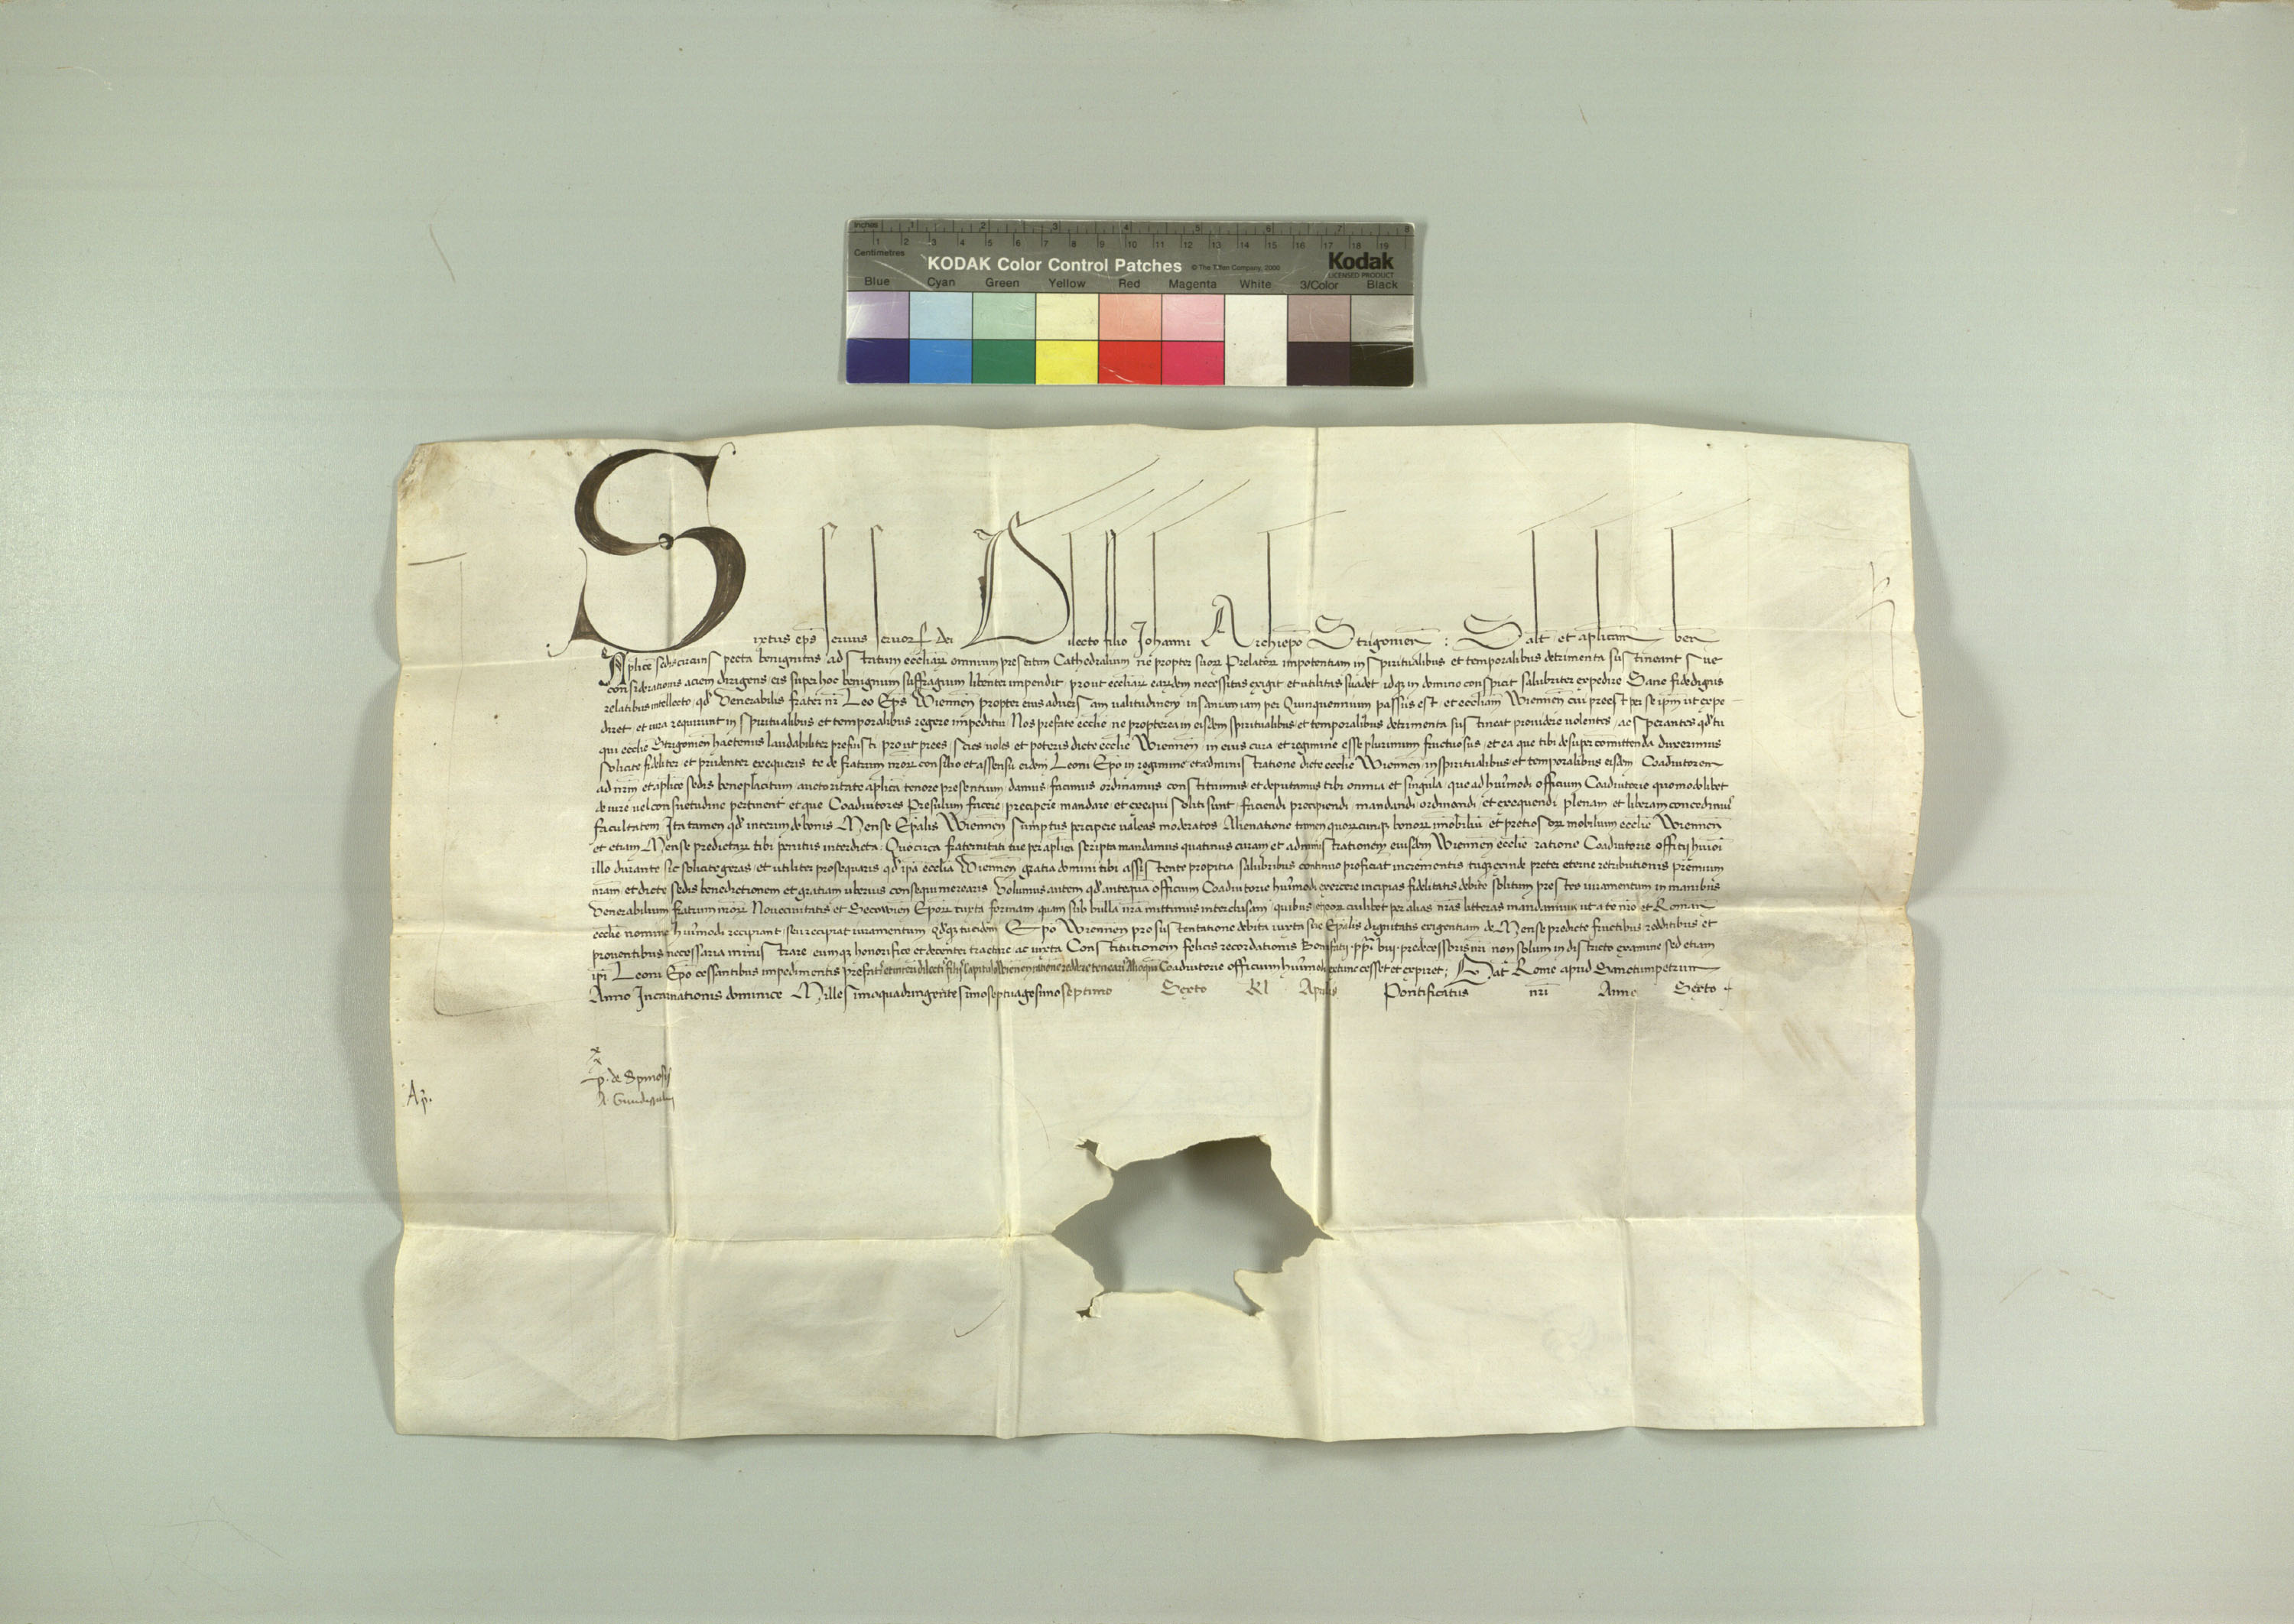 Inches 1 2 3 4 5 6 7 8
1 2 3 4 5 6 7 8 9 10 11 12 13 14 15 16 17 18 19
Centimetres
KODAK Color Control Patches © The Tiffen Company, 2000 Kodak
LICENSED PRODUCT
Blue Cyan Green Yellow Red Magenta White 3/Color Black
Sixtus ep̄s servus servorꝝ dei Dilecto filio Johanni Archiep̄o Strigonien̄ : Salt̄ et ap̄licam̄ ben̄
Ap̄lice sedis circumspecta benignitas ad statum eccl̄iarꝝ omnium presertim Cathedralium ne propter suorꝝ Prelatorꝝ impotentiam in spiritualibus et temporalibus detrimenta sustineant sue
considerationis aciem dirigens eis super hoc benignum suffragium libenter impendit prout eccl̄iarꝝ earꝝdem necessitas exigit et utilitas suadet idqꝫ in domino conspicit salubriter expedire Sane fidedignis
relatibus intellecto qd̄ Venerabilis frater nr̄ Leo Ep̄s Wiennen̄ propter eius adversam valitudinem insaniam iam per Quinquennium passus est et eccl̄iam Wiennen̄ cui preest per se ipm̄ ut expe-
diret et cura requirunt in spiritualibus et temporalibus regere impeditur Nos prefate eccl̄ie ne propterea in eisdem spiritualibus et temporalibus detrimenta sustineat providere volentes ac sperantes qd̄ tu
qui eccl̄ie Strigonien̄ hactenus laudabiliter prefuisti prout prees scies voles et poteris dicte eccl̄ie Wiennen̄ in eius cura et regimine esse plurimum fructuosus et ea que tibi desuper com̄ittenda duxerimus
solicite fideliter et prudenter exequeris te de fratrum nr̄orꝝ consilio et assensu eidem Leoni Ep̄o in regimine et administratione dicte eccl̄ie Wiennen̄ in spiritualibus et temporalibus eisdem Coadiutorem
ad nr̄m et ap̄lice sedis beneplacitum auctoritate ap̄lica tenore presentium damus facimus ordinamus constituimus et deputamus tibi omnia et singula que ad huiūmodi officium Coadiutorie quomodolibet
de iure vel consuetudine pertinent et que Coadiutores Presulum facere precipere mandare et exequi soliti sunt faciendi precipiendi mandandi ordinandi et exequendi plenam et liberam concedimus
facultatem Ita tamen qd̄ interim de bonis Mense Ep̄alis Wiennen̄ sumptus percipere valeas moderatos Alienatione tamen quorꝝcunqꝫ bonorꝝ im̄obiliū et pretiosorꝝ mobilium eccl̄ie Wiennen̄
et etiam Mense predictarꝝ tibi penitus interdicta Quocirca fraternitati tue per ap̄lica scripta mandamus quatinus curam et administrationem eiusdem Wiennen̄ eccl̄ie ratione Coadiutorie officij huiōi
illo durante sic solicite geras et utiliter prosequaris qd̄ ipā eccl̄ia Wiennen̄ gratia domini tibi assistente propitia salubribus continuo proficiat incrementis tuqꝫ exinde preter eterne retributionis premium
nr̄am et dicte sedis benedictionem et gratiam uberius consequi merearis Volumus autem qd̄ antequā officium Coadiutorie huiūmodi exercere incipias fidelitatis debite solitum prestes iuramentum in manibus
Venerabilium fratrum nr̄orꝝ Novecivitatis et Secowien̄ Ep̄orꝝ iuxta formam quam sub bulla nr̄a mittimus interclusam quibus et eorꝝ cuilibet per alias nr̄as litteras mandamus ut a te nr̄o et Roman̄
eccl̄ie nomine huiūmodi recipiant seu recipiat iuramentum Qd̄qꝫ tu eidem Ep̄o Wiennen̄ pro sustentatione debita iuxta sue Ep̄alis dignitatis exigentiam de Mense predicte fructibus redditibus et
proventibus necessaria ministrare eumqꝫ honorifice et decenter tractare ac iuxta Constitutionem felicis recordationis Bonifatij pp̄ viij predecessoris nr̄i non solum in districto examine sed etiam
ip̄i Leoni Ep̄o cessantibus impedimentis prefatis et interim dilectis filijs Capitulo Wiennen̄ rationem reddere tenearis Alioquin Coadiutorie officium huiūmodi extunc cesset et expiret; Dat̄ Rome apud Sanctumpetrum
Anno Incarnationis dominice Millesimoquadringentesimoseptuagesimoseptimo Sexto Kl̄ Aprilis Pontificatus nr̄i Anno Sexto
x
x
p. de Spinosis
Ap.